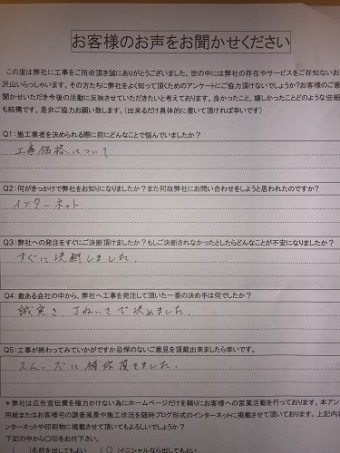 お客様のお声をお聞かせください
この度は弊社に工事をご用命頂き誠にありがとうございました。世の中には弊社の存在やサービスをご存知ないお
沢山いらっしゃいます。その方たちに弊社をよく知って頂くためのアンケートにご協力頂けないでしょうか?お客様のご意
聞かせいただき今後の活動に反映させていただきたいと考えております。良かったこと、嬉しかったことどのような些細
も結構です。是非ご協力お願い致します。(出来るだけ具体的に書いて頂ければ幸いです)
Q1:施工業者を決められる際に前にどんなことで悩んでいましたか?
工事価格について
Q2:何がきっかけで弊社をお知りになりましたか?また何故弊社にお問い合わせをしようと思われたのですか?
インターネット
Q3:弊社への発注をすぐにご決断頂けましたか?もしご決断されなかったとしたらどんなことが不安になりましたか?
すぐに決断しました。
Q4:数ある会社の中から、弊社へ工事を発注して頂いた一番の決め手は何でしたか?
誠実さ、丁ねいさで決めました。
Q5:工事が終わってみていかがですか忌憚のないご意見を頂戴出来ましたら幸いです。
スムーズに補修頂きました。
*弊社は広告宣伝費を極力かけない為にホームページだけを頼りにお客様への営業活動を行っております。本アン
用紙またはお客様号の調査風景や施工状況を随時ブログ形式のインターネットに掲載させて頂いております。上記内容
ンターネットや印刷物に掲載させて頂いてもよろしいでしょうか?
下記の中から〇印をお付下さい。
( )名前を出してもよい (〇)イニシャルなら出してもよい